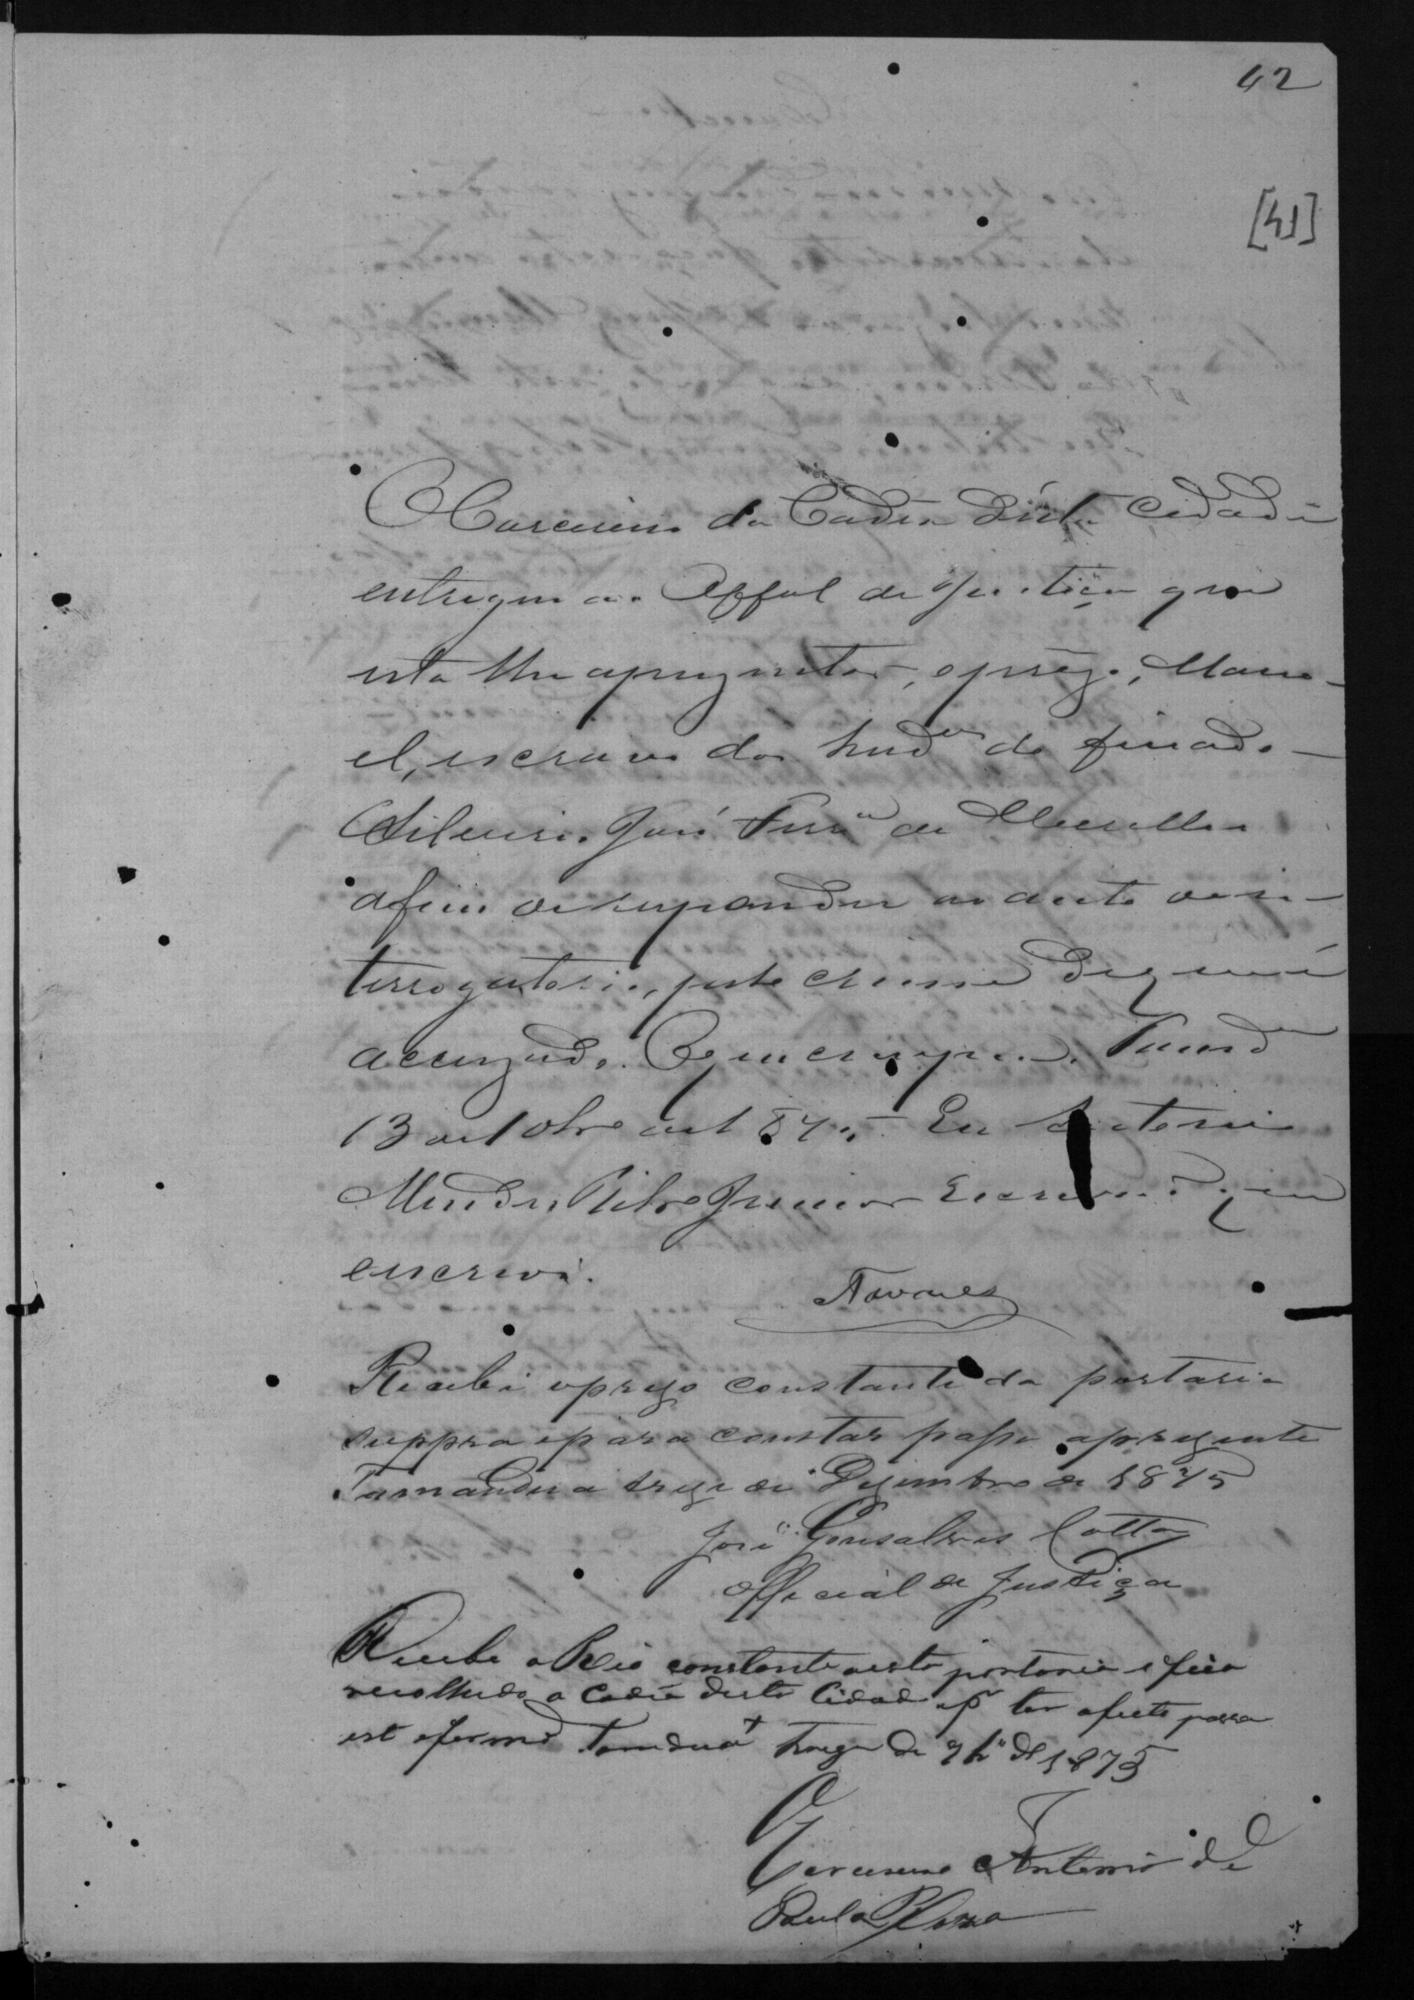 42
[41]
O Carcereiro da Cadêa désta Cidade
entregue ao Offal de Justiça que
esta lhe aprezentar, o prêzo, Mano-
el, escravo dos herdros do finado
Silverio José Ferra de Mesellos
afim de responder ao auto de in-
terrogatorio, pelo crime de que é
accuzado. O que cumpra. Tamand
13 de 10bro de 1875. Eu Antonio
Mendes Ribro Junior Escrivão que
escrevi.
Tavares
Recebi o prezo constante da portaria
suppra e para constar passo a prezente
Tamandua treze de Dezembro de 1875
José Gonsalves Cotta
Official de Justiça
Recebi o Reo constante desta portaria e fica
recolhido a Cadêa desta Cidade e pa ter afeito passo
este e firmo Tamdua treze de de 1875
Antonio de
Paula